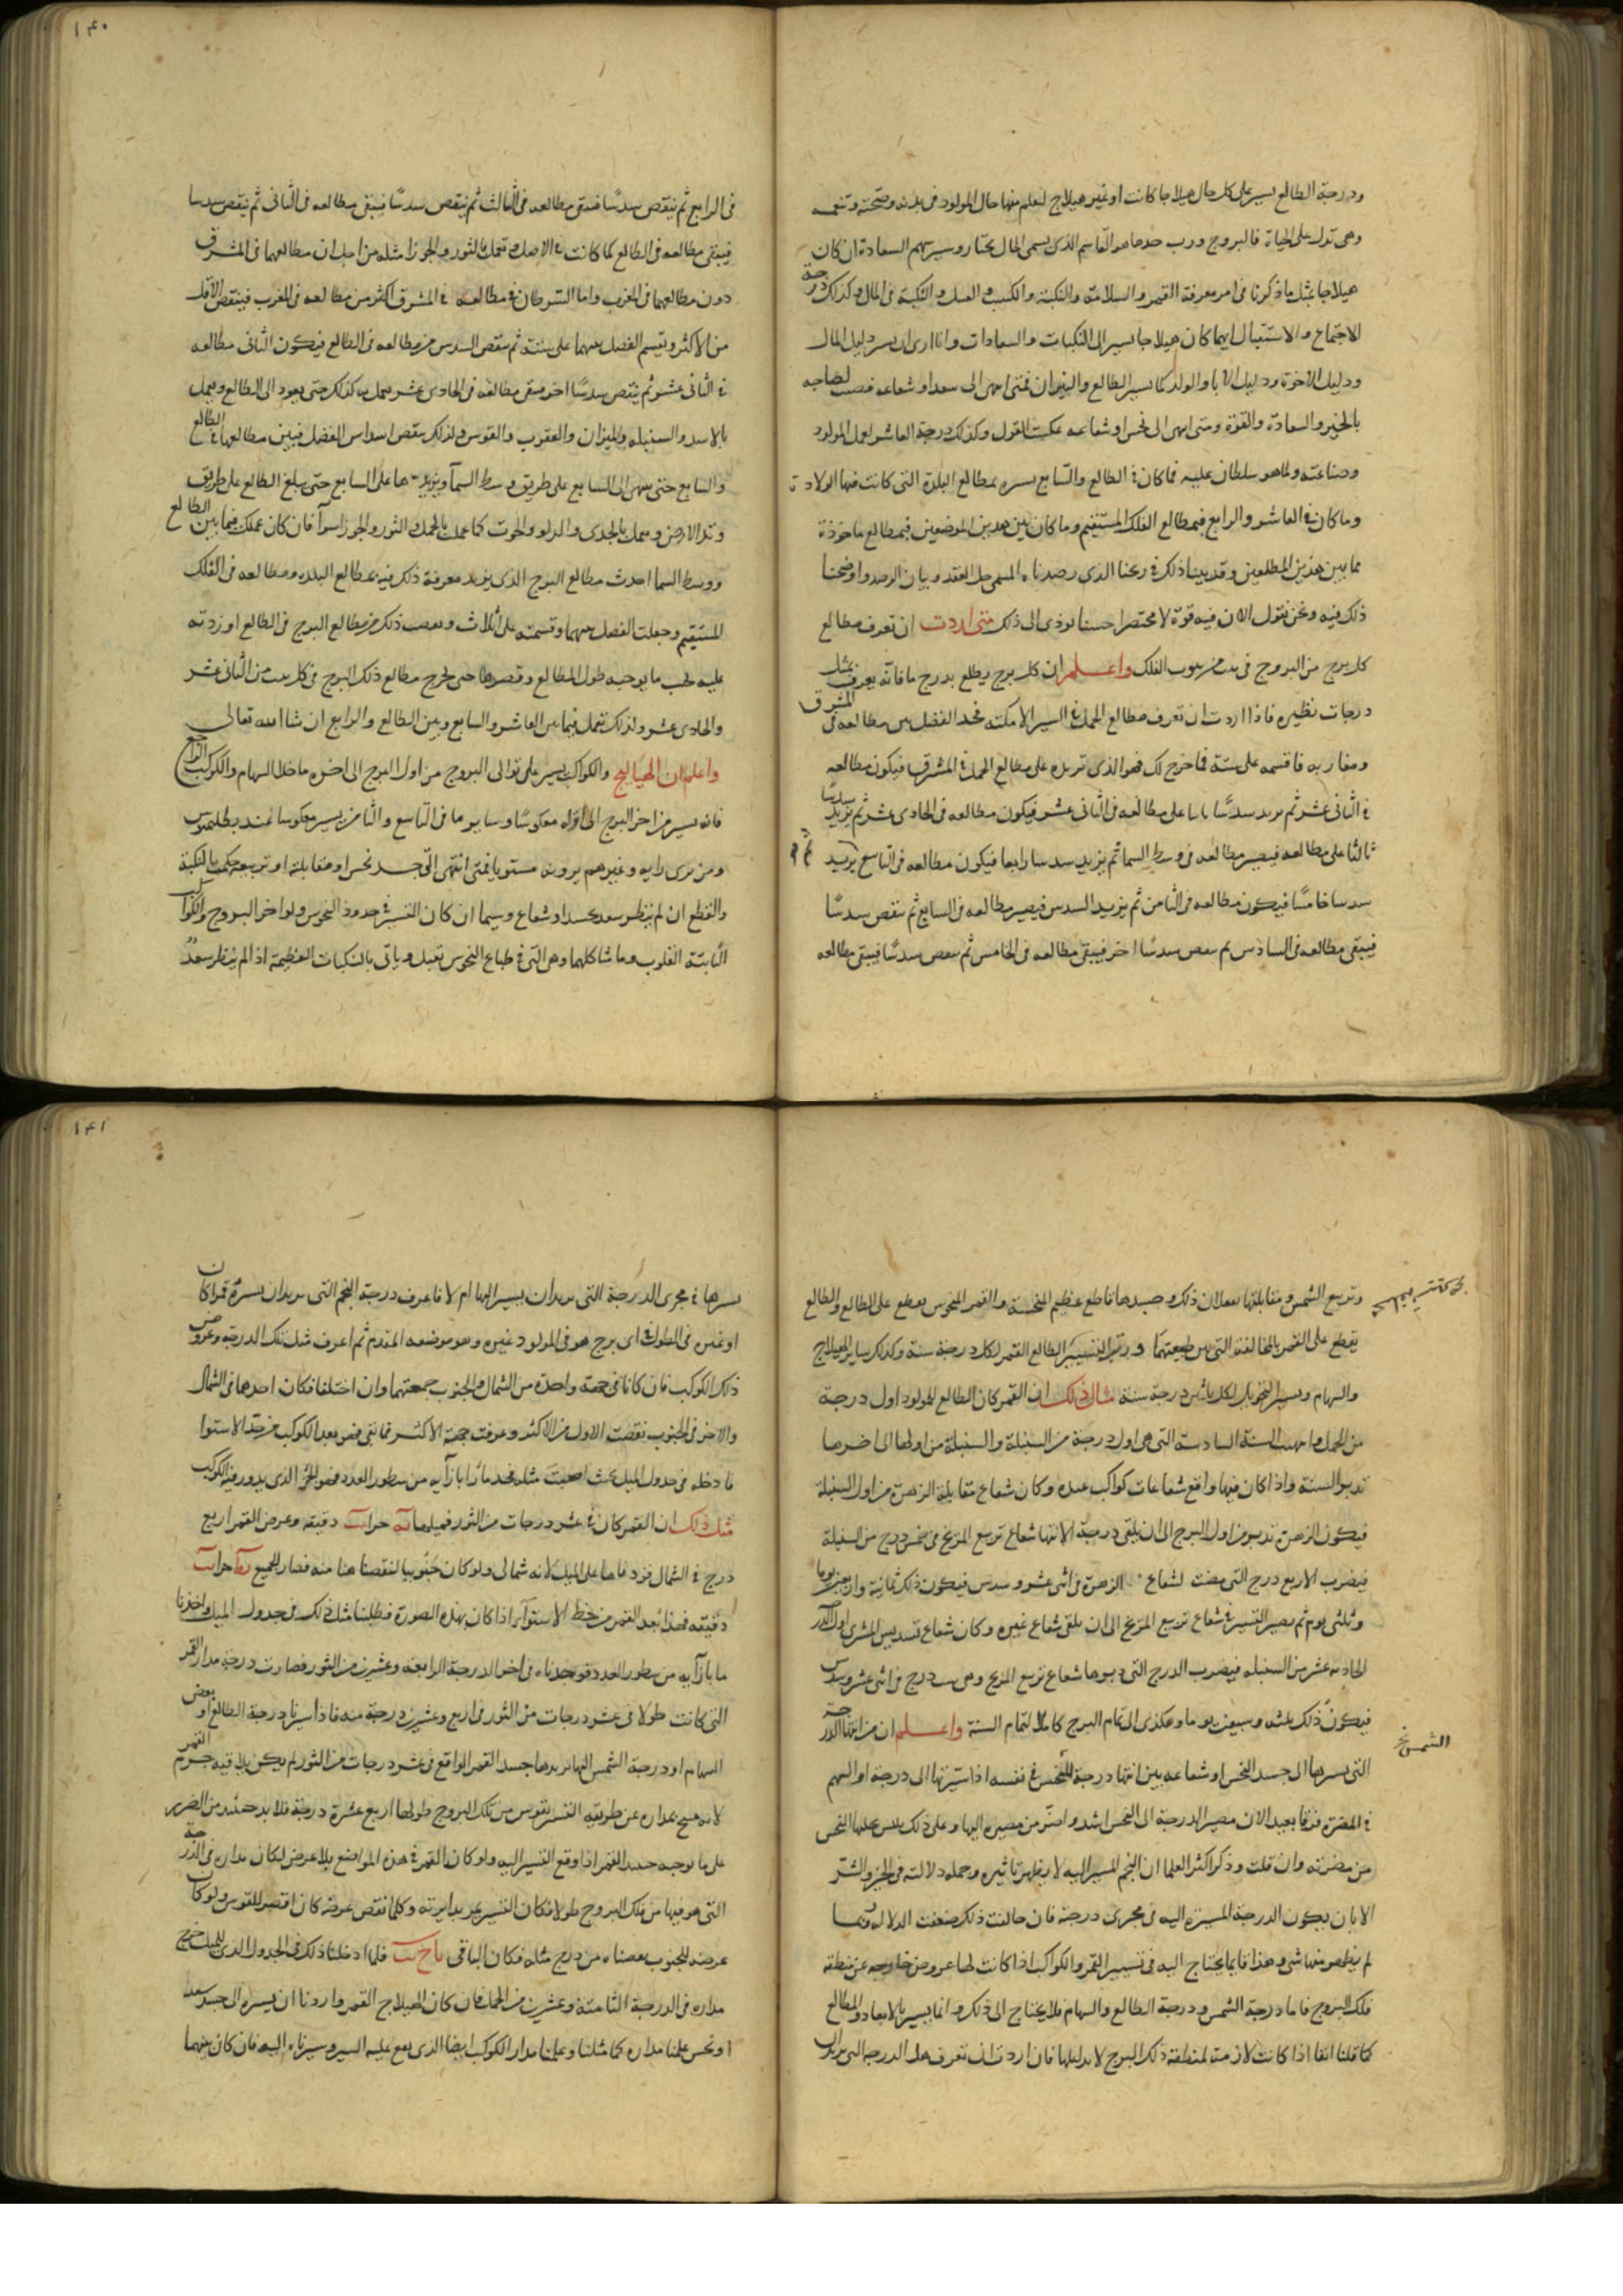 ودرجة الطالع يسير على كل حال هيلاجا كانت او غير هيلاج لنعلم منها حال المولود فى بدنه وصحته وتنعمه
وهى تدل على الحياة فالبروج ورب حدها هو القاسم الذى يسمى الجان بختار وسير سهم السعادة ان كان
هيلاجا بمثل ما ذكرنا فى امر معرفة القمر والسلامة والنكبة والكسب و العمل و النكبة فى المال وكذلك درجة
الاجتماع والاستقبال ايهما كان هيلاجا يسير الى النكبات والسعادات وانا ارى ان يسير دليل المال
ودليل الاخوة ودليل الابا والولد كما يسير الطالع والنيران فمتى انتهى الى سعد او شعاعه قضيت لصاحبه
بالخير والسعادة والقوة ومتى انتهى الى نحس او شعاعه عكست القول وكذلك درجة العاشر لعمل المولود
وصناعته ولما هو سلطان عليه فما كان فى الطالع والسابع يسيره بمطالع البلدة التى كانت فيها الولادة
وما كان فى العاشر والرابع فبمطالع الفلك المستقيم وما كان بين هذين الموضعين فبمطالع ماخوذة
مما بين هذين المطلعين وقد بينا ذلك فى زيجنا الذى رصدناه المسمى حل العقد وبيان الرصد واوضحنا
ذلك فيه ونحن نقول الان فيه قولا مختصرا حسنا يودى الى ذلك متى اردت ان تعرف مطالع
كل برج من البروج فى بيت من بيوت الفلك واعلم ان كل برج يطلع بدرج ما فانه يغرب بمثل
درجات نظيره فاذا اردت ان تعرف مطالع الحمل فى السير الامكنة فخذ الفضل بين مطالعه فى المشرق
ومغاربه فاقسمه على ستة فما خرج لك فهو الذى تزيده على مطالع الحمل فى المشرق فيكون مطالعه
فى الثانى عشر ثم يزيد سدسًا ثانيا على مطالعه فى الثانى عشر فيكون مطالعه فى الحادى عشر ثم تزيد سدسًا
ثالثا على مطالعه فيصير مطالعه فى وسط السما ثم يزيد سدسا رابعا فيكون مطالعه فى التاسع ثم يزيد
سدسا خامسًا فيكون مطالعه فى الثامن ثم يزيد السدس فيصير مطالعه فى السابع ثم ينقص سدسًا
فيبقى مطالعه فى السادس ثم ينقص سدسًا اخر فيبقى مطالعه فى الخامس ثم ينقص سدسًا فيبقى مطالعه
١٤٠
فى الرابع ثم ينقص سدسًا فتبقى مطالعه فى الثالث ثم ينقص سدسًا فيبقى مطالعه فى الثانى ثم ينقص سدسا
فيبقى مطالعه فى الطالع كما كانت فى الاصل وتعمل بالثور والجوزا مثله من اجل ان مطالعهما فى المشرق
دون مطالعهما فى المغرب واما السرطان فمطالعه فى المشرق اكثر من مطالعه فى المغرب فينقص الاقل
من الاكثر ويقسم الفضل بينهما على ستة ثم ينقص السدس من مطالعه فى الطالع فيكون الثانى مطالعه
فى الثانى عشر ثم ينقص سدسًا اخر فيبقى مطالعه فى الحادى عشر يعمل به كذلك حتى يعود الى الطالع ويعمل
بالاسد والسنبلة والميزان والعقرب والقوس كذلك ينقص اسداس الفضل فيبين مطالعها فى الطالع
والسابع حتى ينتهى الى السابع على طريق وسط السمآ ويزيدها على السابع حتى يبلغ الطالع على طريق
وتد الارض ويعمل بالجدى والدلو والحوت كما عملت بالحمل والثور والجوزا سوآ فان كان عملك فيما بين الطالع
ووسط السما اخذت مطالع البرج الذى يزيد معرفة ذلك فيه بمطالع البلد ومطالعه فى الفلك
المستقيم وجعلت الفضل بينهما وقسمته على اثلاث ونقصت ذلك من مطالع البرج فى الطالع او زدته
عليه بحسب ما يوجبه طول المطالع وقصرها حتى يخرج مطالع ذلك البرج فى كل بيت من الثانى عشر
والحادى عشر وكذلك تعمل فيما بين العاشر والسابع وبين الطالع والرابع ان شا الله تعالى
واعلم ان الهياليج والكواكب يسير على توالى البروج من اول البرج الى اخره ما خلا السهام والكوكب الراجع
فانه يسير من اخر البرج الى اوله معكوسًا وساير ما فى التاسع والثامن يسير معكوسا عند بطلميوس
ومن يرى رايه وغيرهم يرونه مستويا فمتى انتهى الى جسد نحس او مقابلة او تربيعه حكمت بالنكبة
والقطع ان لم ينظر سعد بجسد او شعاع وسيما ان كان التسيير فى حدود النحوس ولواخر البروج والكواكب
الثابتة القلوب وما شاكلها وهى التى فى طباع النحوس تقتل وياتى بالنكبات العظيمة اذا لم ينظر سعد
وتربيع الشمس ومقابلتها يفعلان ذلك وجسدها قاطع عظيم المنحسة والقمر المنحوس يقطع على الطالع والطالع
يقطع على القمر بالمخالفة التى بين طبيعتهما وتسيير الطالع القمر لكل درجة سنة وكذلك ساير الهيلاج
والسهام وتسيير التحويل لكل ثلثين درجة سنة مثال ذلك ان القمر كان الطالع للمولود اول درجة
من الحمل وانتهت السنة السادسة التى هى اول درجة من السنبلة والسنبلة من اولها الى اخرها
تدبر السنة واذا كان فيها واقع شعاعات كواكب عدة وكان شعاع مقابلة الزهرة من اول السنبلة
فيكون الزهرة تدبر من اول البرج الى ان يلقى درجة الانتها شعاع تربيع المريخ فى خمس درج من السنبلة
فيضرب الاربع درج التى مضت لشعاع الزهرة فى اثنى عشر وسدس فيكون ذلك ثمانية واربعين يوما
وثلثى يوم ثم يصير التسيير فى شعاع تربيع المريخ الى ان يلقى شعاع غيره وكان شعاع تسديس المشترى اول الدر
الحادية عشر من السنبله فيضرب الدرج التى دبرها شعاع تربيع المريخ وهى ست درج فى اثنى عشر وسدس
فيكون ذلك ثلثة وسبعين يوما وهكذى الى تمام البرج كاملا لتمام السنة واعلم ان من انتها الدرجة
التى يسيرها الى جسد النحس او شعاعه بين انتها درجة النحس فى نفسه اذا سيرتها الى درجة او السهم
فى المضرة فرقا بعيدا لان مصير الدرجة الى النحس اشد واضر من مصيره اليها وعلى ذلك ليس يخليها النحس
من مضرته وان قلت وذكر اكثر العلما ان النجم المسير اليه لا يظهر تاثيره وجملة دلالته فى الخير والشر
الا بان يكون الدرجة المسيرة اليه فى مجرى درجة فان خالفت ذلك ضعفت الدلالة وربما
لم يظهر منها شى وهذا فانما يحتاج اليه فى تسيير القمر والكواكب اذا كانت لها عروض خارجة عن منطقة
فلك البروج فاما درجة الشمس ودرجة الطالع والسهام فلا يحتاج الى ذلك وانما يسير بالابعاد والمطالع
كما قلنا انفا اذا كانت لازمة لمنطقة ذلك البرج لا بد لها فان اردت ان تعرف هل الدرجة التى تريد ان
الشمس
١٤١
يسيرها فى مجرى الدرجة التى يريد ان يسير اليها ام لا فاعرف درجة النجم التى يريد ان يسيره قمرا كان
او غيره فى الطول فى اى برج هو فى المولود غيره وهو موضعه المقدم ثم اعرف ميل تلك الدرجة وعرض
ذلك الكوكب فان كانا فى جهة واحدة من الشمال والجنوب جمعتهما وان اختلفا فكان احدهما فى الشمال
والاخر فى الجنوب نقصت الاول من الاكثر وعرفت جهة الاكثر فما بقى فهو بعد الكوكب من خط الاستوا
فادخله فى جدول الميل بحيث اصبت مثله فخذ ما بازآيه من سطور العدد فهو الجزء الذى يدور فيه الكوكب
مثل ذلك ان القمر كان فى عشر درجات من الثور فميلها يه جزا نب دقيقه وعرض القمر اربع
درج فى الشمال فزدناها على الميل لانه شمالى ولو كان جنوبيا لنقصناها منه فصار الجميع يط جزا نب
دقيقه فهذا بعد القمر من خط الاستوآء اذا كان بهذه الصورة فطلبنا مثل ذلك فى جدول الميل واخذنا
ما بازآيه من سطور العدد فوجدناه فى اخر الدرجة الرابعة وعشرين من الثور فصارت درجة مدار القمر
التى كانت طولا فى عشر درجات من الثور فى اربع وعشرين درجة منه فاذا سيرنا درجة الطالع او بعض
السهام او درجة الشمس التى نريدها جسد القمر الواقع فى عشر درجات من الثور لم يكن يلاقيه جرم القمر
لانه متنح بمداره عن طريقه التسيير بقوس من تلك البروج طولها اربع عشرة درجة فلا بد حينئذ من الضرر
على ما يوجبه جسد القمر اذا وقع التسيير اليه ولو كان القمر فى هذه المواضع بلا عرض لكان مداره فى الدرجة
التى هو فيها من فلك البروج طولا فكان التسيير يمر بدايرته وكلما نقص عرضه كان اقصر للقوس ولو كان
عرضه للجنوب نقصناه من درج مثله فكان الباقى يا ح نب فلما ادخلنا ذلك فى الجدول الذى للميل خرج
مداره فى الدرجة الثامنة وعشرين من الحمل فان كان الهيلاج القمر واردنا ان يسيره الى جسد سعد
او نحس علمنا مداره كما مثلنا وعلمنا مدار الكوكب ايضا الذى يقع عليه السير وسيرناه اليه فان كان بينهما